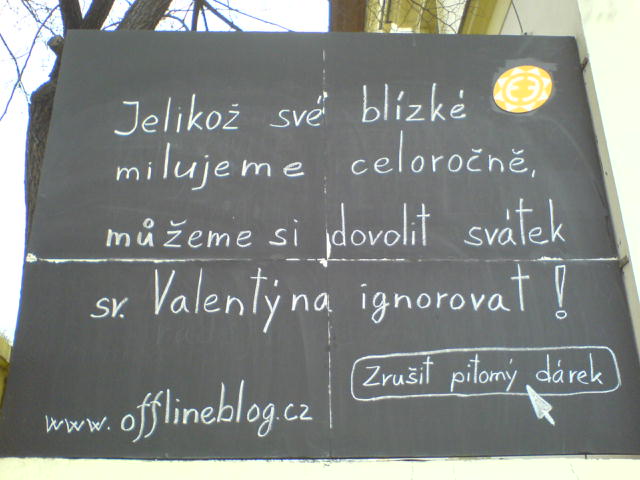 Jelikož své blízké
milujeme celoročně,
můžeme si dovolit svátek
sv. Valentýna ignorovat!
Zrušit pitomý dárek
www.offlineblog.cz